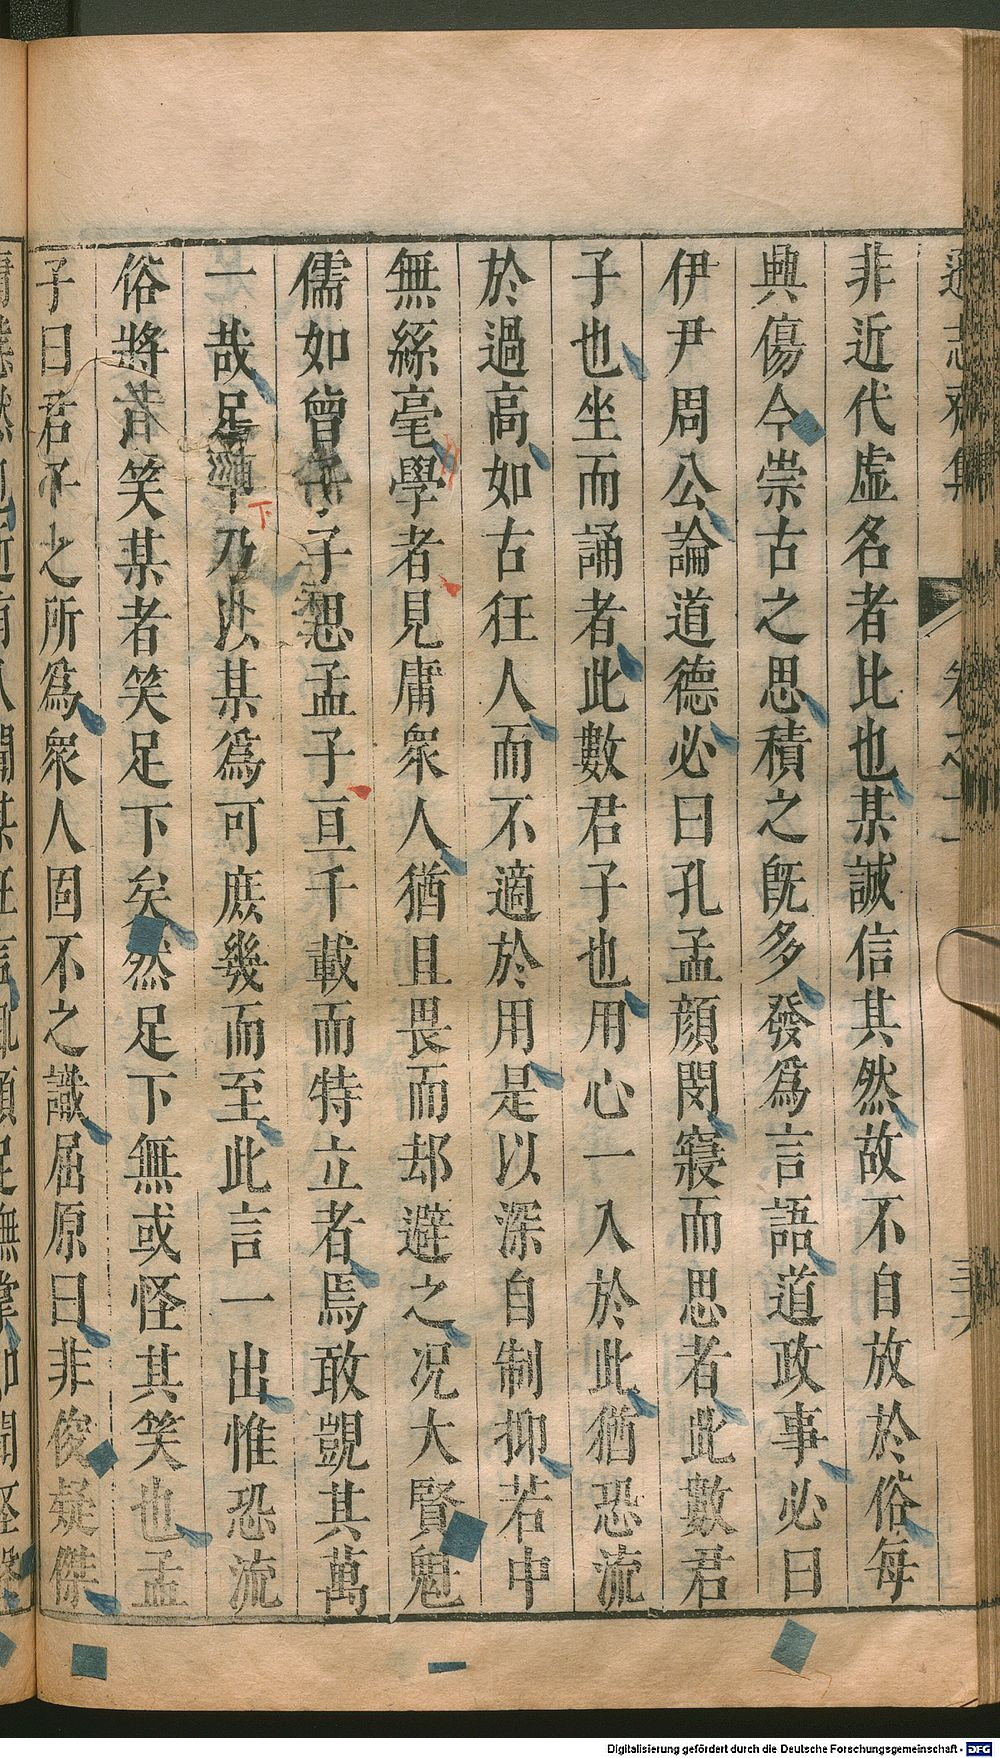 遜志齋集 卷之十一 三十六
非近代虛名者比也某誠信其然故不自放於俗每
興傷今崇古之思積之旣多發爲言語道政事必曰
伊尹周公論道德必曰孔孟顏閔寢而思者此數君
子也坐而誦者此數君子也用心一入於此猶恐流
於過高如古狂人而不適於用是以深自制抑若中
無絲毫學者見庸衆人猶且畏而却避之况大賢魁
儒如曾子子思孟子亘千載而特立者焉敢覬其萬
一哉足下乃以某爲可庶幾而至此言一出惟恐流
俗將者笑某者笑足下矣然足下無或怪其笑也孟
子曰君子之所爲衆人固不之識屈原曰非俊疑傑
Digitalisierung gefördert durch die Deutsche Forschungsgemeinschaft - DFG